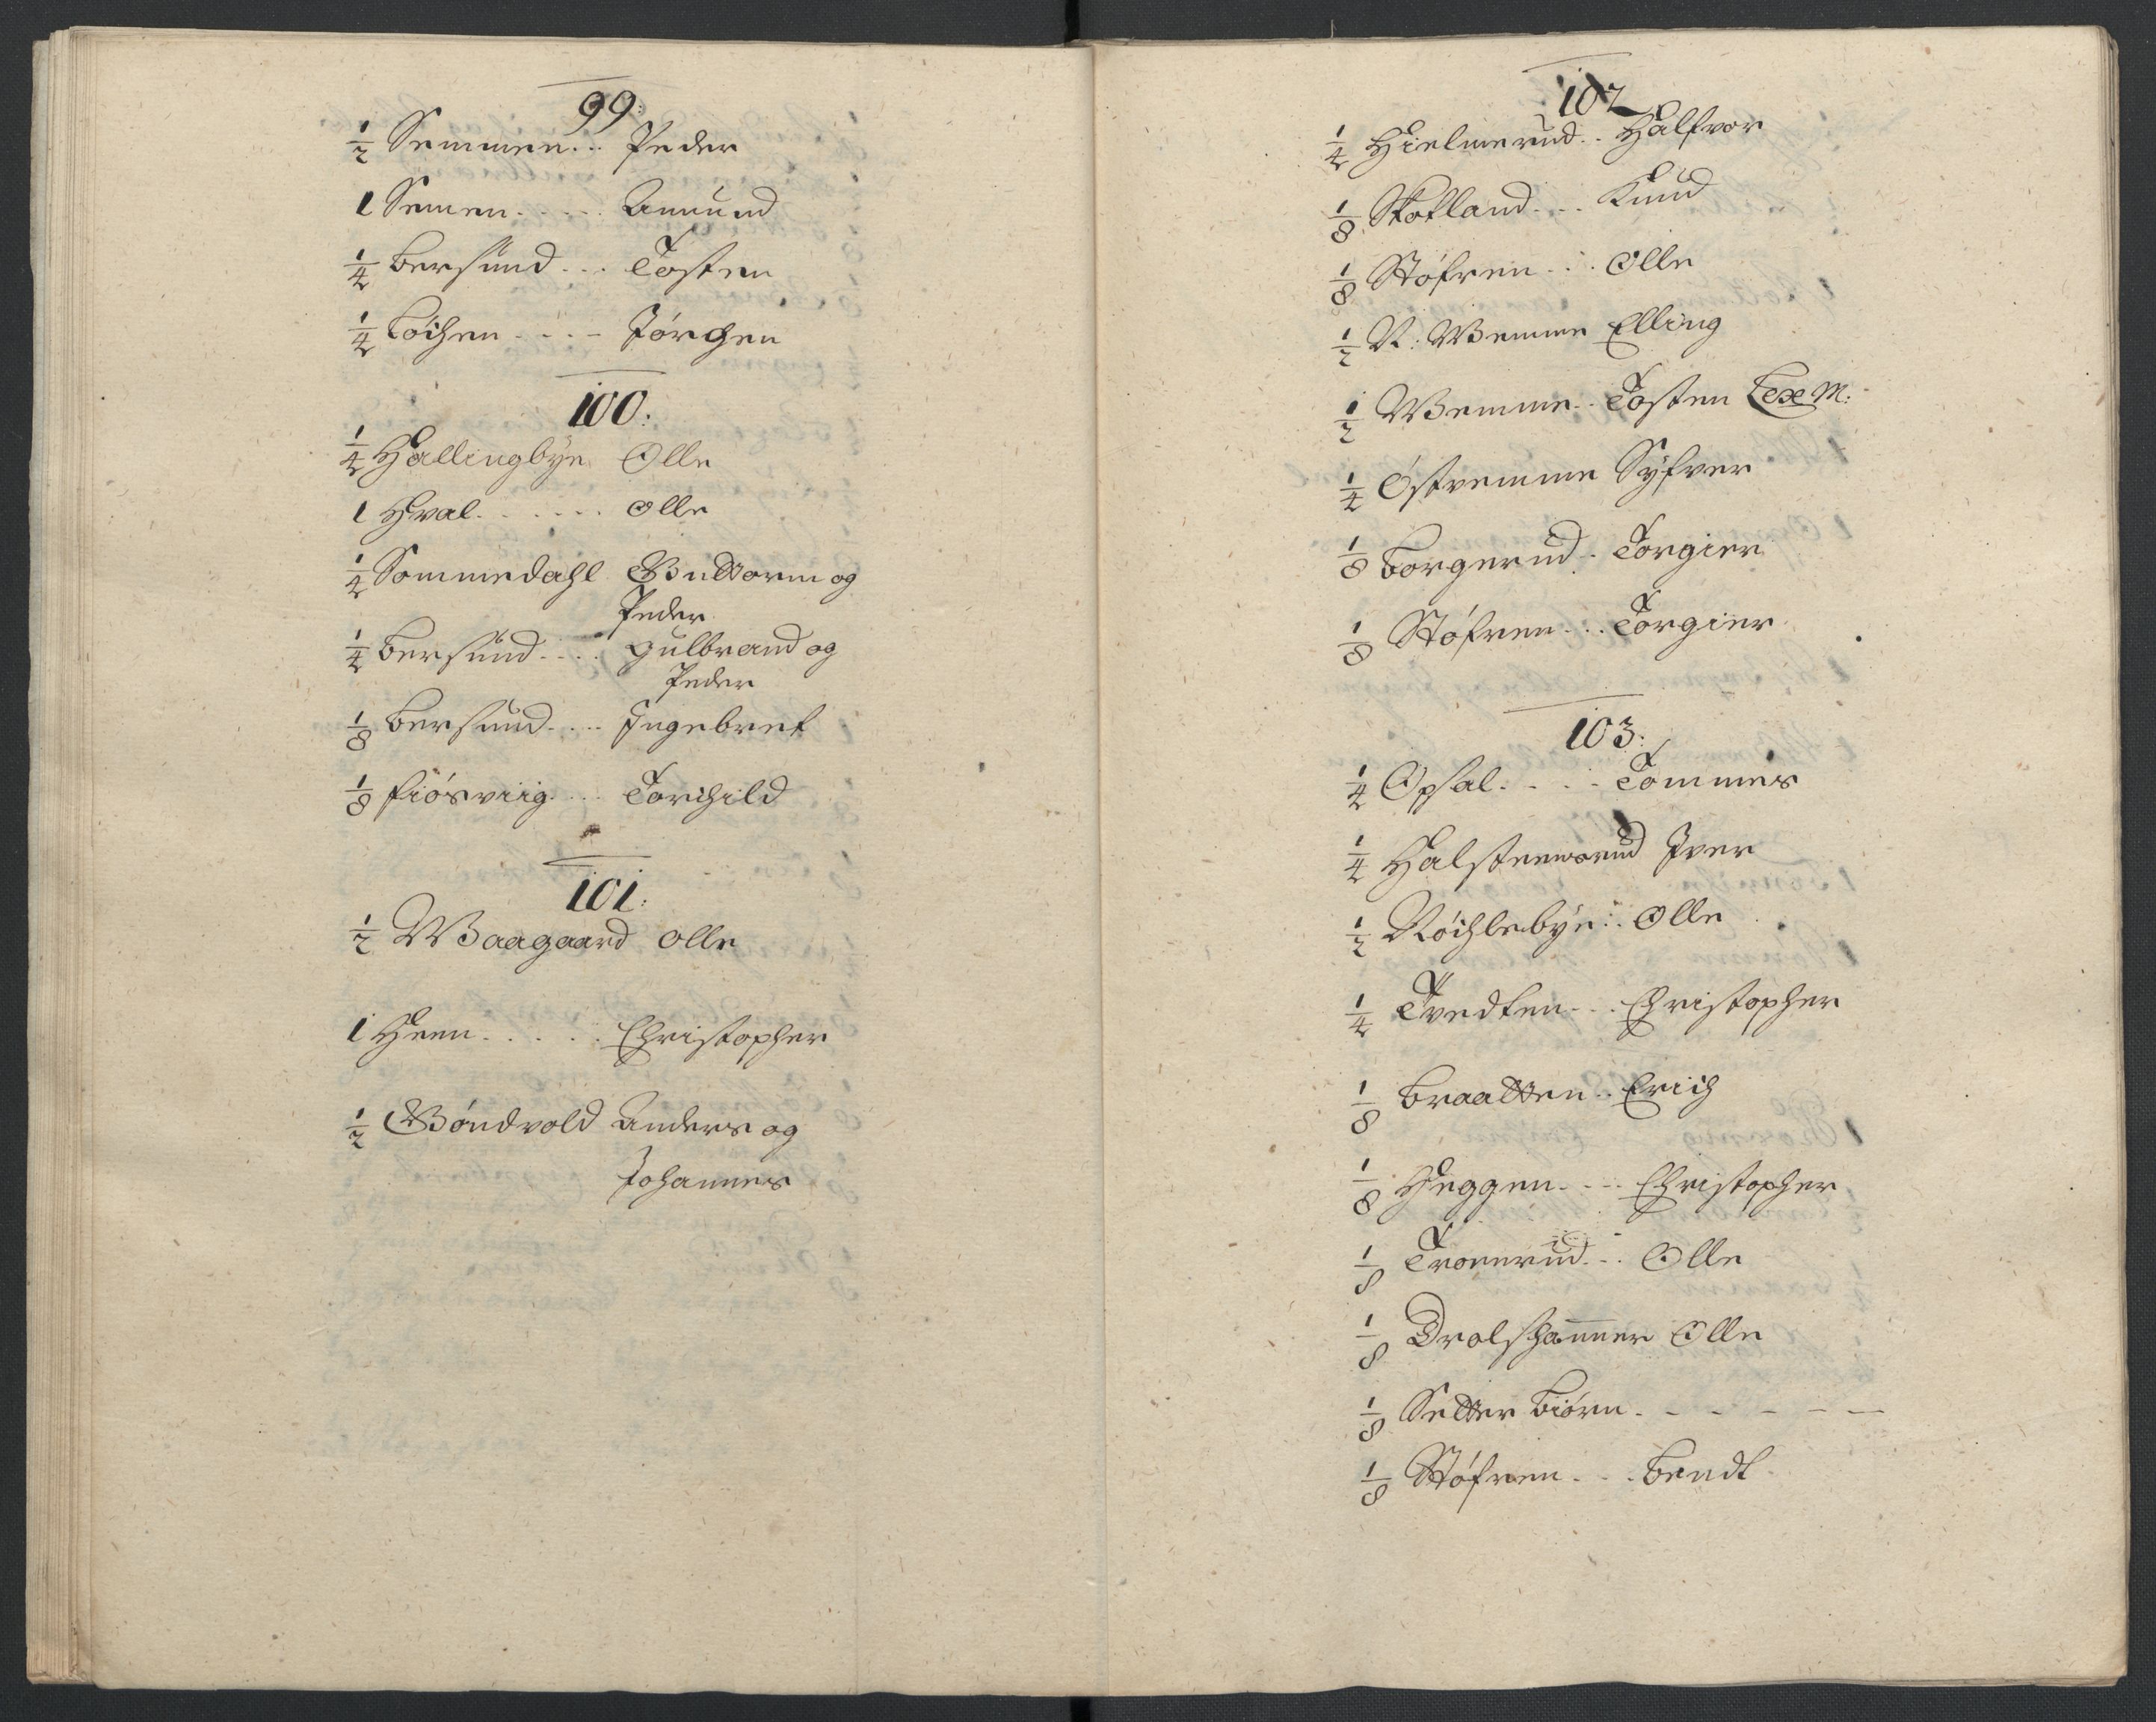 99:
1/2 Semmen... Peder
1 Semen..... Amund
1/4 Bersund... Tosten
1/4 Løchen.... Jørgen
100:
1/4 Hallingbye Olle
1 Hval...... Olle
1/4 Sommedahl Guttorm og
Peder
1/4 Bersund.... Gulbrand og
Peder
1/8 Bersund.... Ingebret
1/8 fiösviig.... Torchild
101:
1/2 Waagaard Olle
1 Heen..... Christopher
1/2 Gøndvold Anders og
Johannes
102
1/4 Hielmerud.. Halfvor
1/8 Skotland... Knud
1/8 Støfren... Olle
1/2 N: Wemme Elling
1/2 Wemme.. Tosten Lex M:
1/4 Østvemme Syfver
1/8 Borgerud.. Torgier
1/8 Støfren... Torgier
103:
1/4 Opsal.... Tommes
1/4 Halsteensrud Iver
1/2 Røchlebye.. Olle
1/4 Tvedten... Christopher
1/8 Braatten.. Erich
1/8 Heggen.... Christopher
1/8 Tronrud... Olle
1/8 Drolshammer Olle
1/8 Setter Biørn......
1/8 Støfren... Bendt